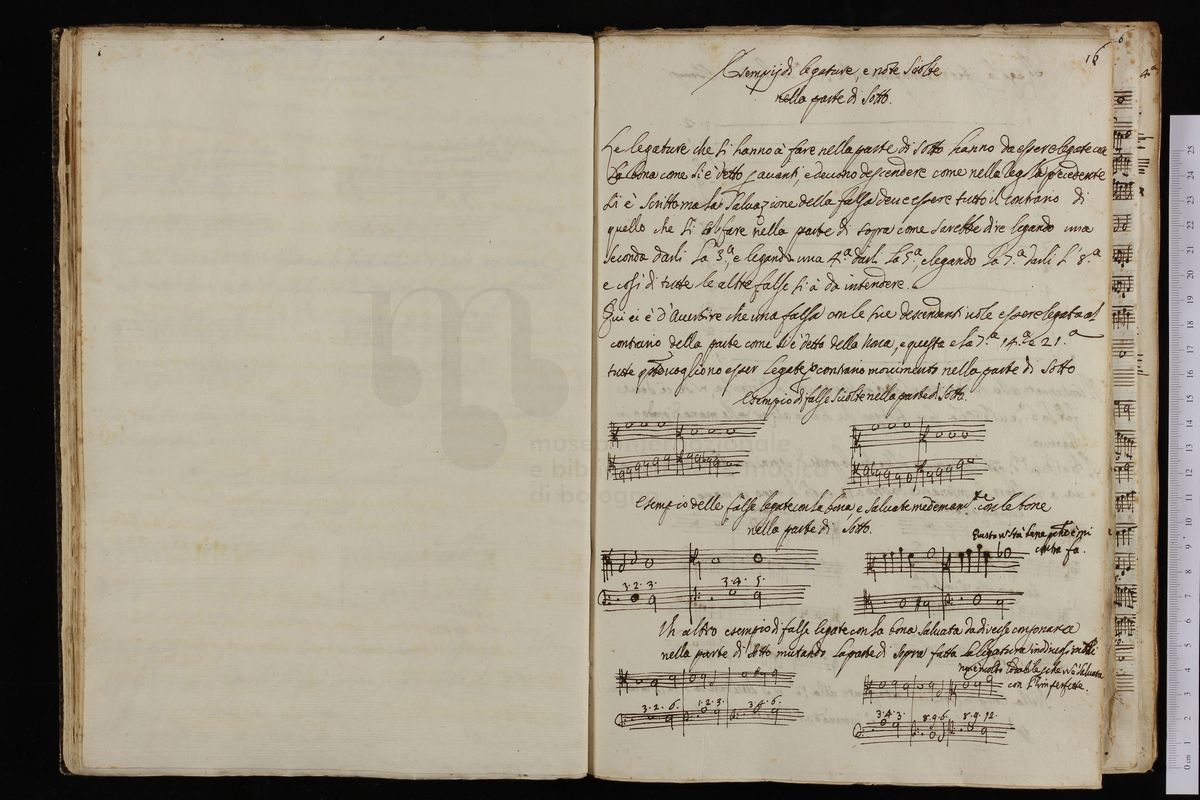 16
Esempij di legature, e note Sciolte
nella parte di Sotto.
Le legature che si hanno à fare nella parte di Sotto hanno da essere legate con
la bona come si è detto avanti, e devono descendere come nella precedente
si è Scritto ma la Salvazione della falsa deve essere tutto il contrario di
quello che si fare nella parte di sopra come sarebbe dire legando una
seconda darli la 3.ª, e legando una 4.ª darli la 5.ª, e legando la 7.ª darli l' 8.ª
e così di tutte le altre false si à da intendere.
Qui ci è d'Avertire che una falsa con le sue descendenti vole essere legata al
contrario della parte come si è detto della Nona, e questa e la 7.ª 14.ª e 21.ª
tutte vogliono esser legate contrario movimento nella parte di Sotto
Esempio di false Sciolte nella parte di Sotto.
Esempio delle false legate con la bona e Salvate con le bone
nella parte di Sotto.
Questo sta bene è mi
contra fa.
3. 2. 3.
3. 4. 5.
Un altro esempio di false legate con la bona Salvata da diverse consonanze
nella parte di Sotto mutando la parte di Sopra fatta la legatura
non è molto Salvata
con l'Imperfette.
3. 2. 6. 1. 2. 3. 3. 4. 6.
3. 4. 3. 8. 9. 6. 8. 9. 12.
museo internazionale
e bibl
di bologna
4ª
6
25
24
23
22
21
20
19
18
17
16
15
14
13
12
11
10
9
8
7
6
5
4
3
2
1
0 cm